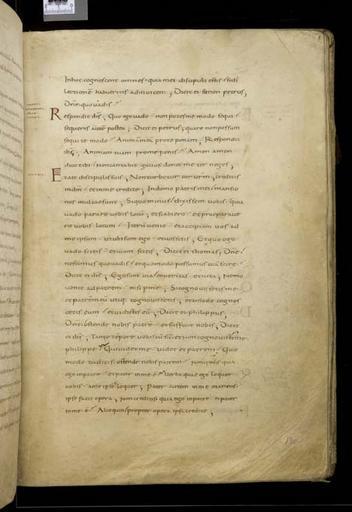 Inhoc cognoscent omnes quia mei discipuli estis · si di
lectionē habueritis adinvicem ; Dicit ei simon petrus,
Dne quo vadis
Respondit ihs, Quo ego vado non potes me modo sequi
sequeris autē postea ; Dicit ei petrus, quare non possum
sequi te modo · Animā meā pro te ponam ; Respondit
ihs, Animam tuam pro me pones · Amen amen
dico tibi · non cantabit gallus donec me ter neges,
Et ait discipulis suis, Non turbetur cor vestrum, creditis
in dm · et in me credite ; In domo patris mei mansio
nes multae sunt ; Si quo minus dixissem vobis quia
vado parare vobis locū ; et si abiero · et praeparave
ro vobis locum · Iterū venio · et accipiam vos ad
me ipsum · ut ubi sum ego · et vos sitis ; Et quo ego
vado scitis · et viam scitis ; Dicit ei thomas, Dne
nescimus quo vadis · et quomodo possumus viā scire
Dicit ei ihs, Ego sum via et veritas et vita ; nemo
venit ad patrem · nisi per me, Si cognovissetis me
et patrem meū utiq; cognovissetis, et amodo cognos
cetis eum · et vidistis eū ; Dicit ei philippus,
Dne ostende nobis patrē · et sufficit nobis, Dicit
ei ihs, Tanto tempore vobiscum sum et non cognovistis me
philippe · Qui videt me · videt et patrem, Quo
modo tu dicis ostende nobis patrem · non credis quia
ego in patre · et pater in me ē · Verba quae ego loquor
vobis · a me ipso non loquor ; Pater autem in me manens
ipse facit opera ; non creditis quia ego in patre · et pater
in me ē · Alioquin propter opera ipsa credite ;